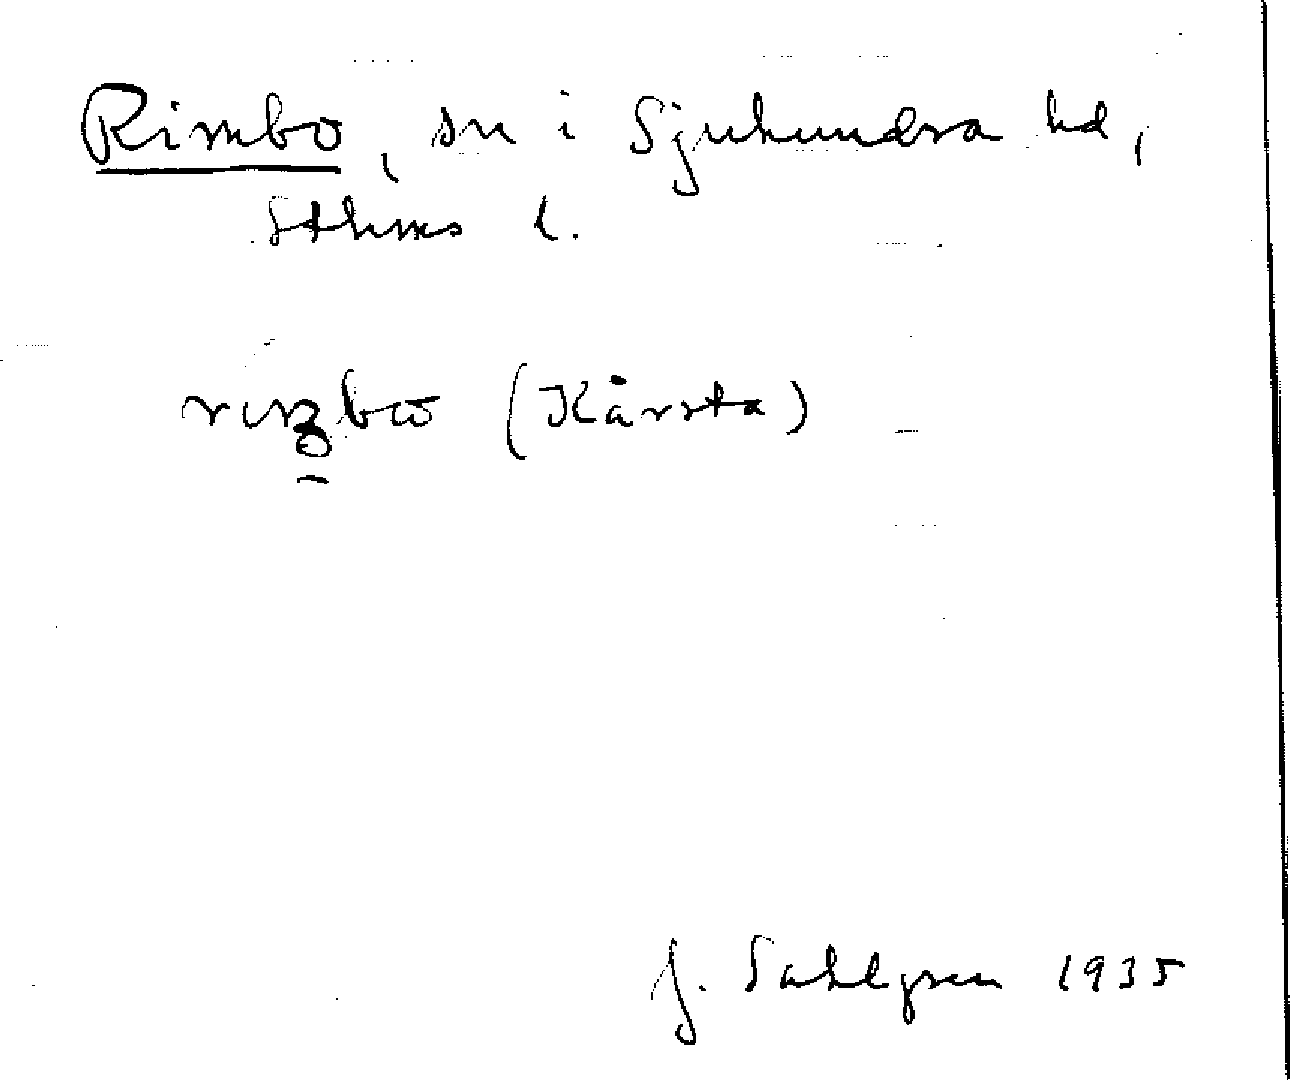 Rimbo, sn i Sjuhundra hd,
Sthms l.
(Kårsta)
J. Sahlgren 1935